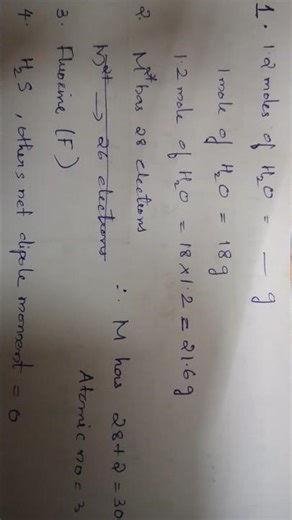 1. 1.2 moles of H₂O = __ g
1 mole of H₂O = 18g
1.2 mole of H₂O = 18×1.2 = 21.6g
2. M²⁺ has 28 electrons
M²⁺ → 26 electrons
∴ M has 28+2=30
Atomic no = 3
3. Fluorine (F)
4. H₂S, others net dipole moment = 0